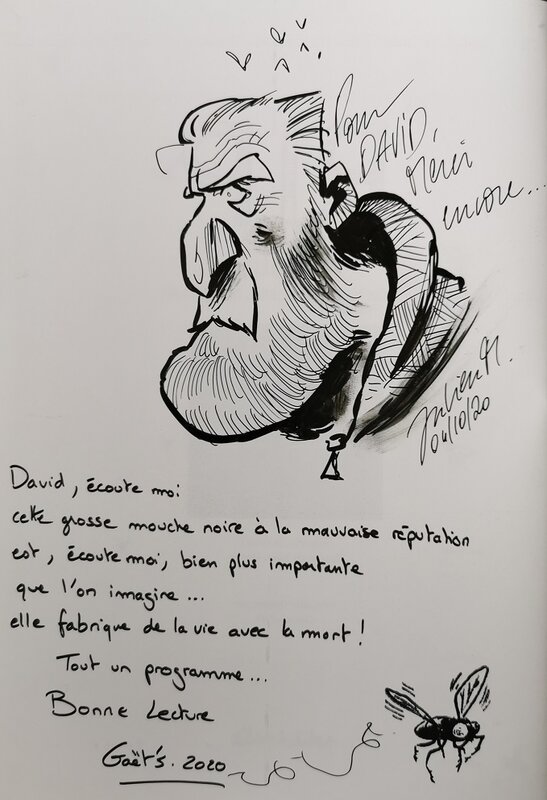 Pour
DAVID,
Merci
encore...
Julien M.
04/10/20
David, écoute moi
cette grosse mouche noire à la mauvaise réputation
est, écoute moi, bien plus importante
que l'on imagine...
elle fabrique de la vie avec la mort !
Tout un programme...
Bonne Lecture
Gaët's. 2020